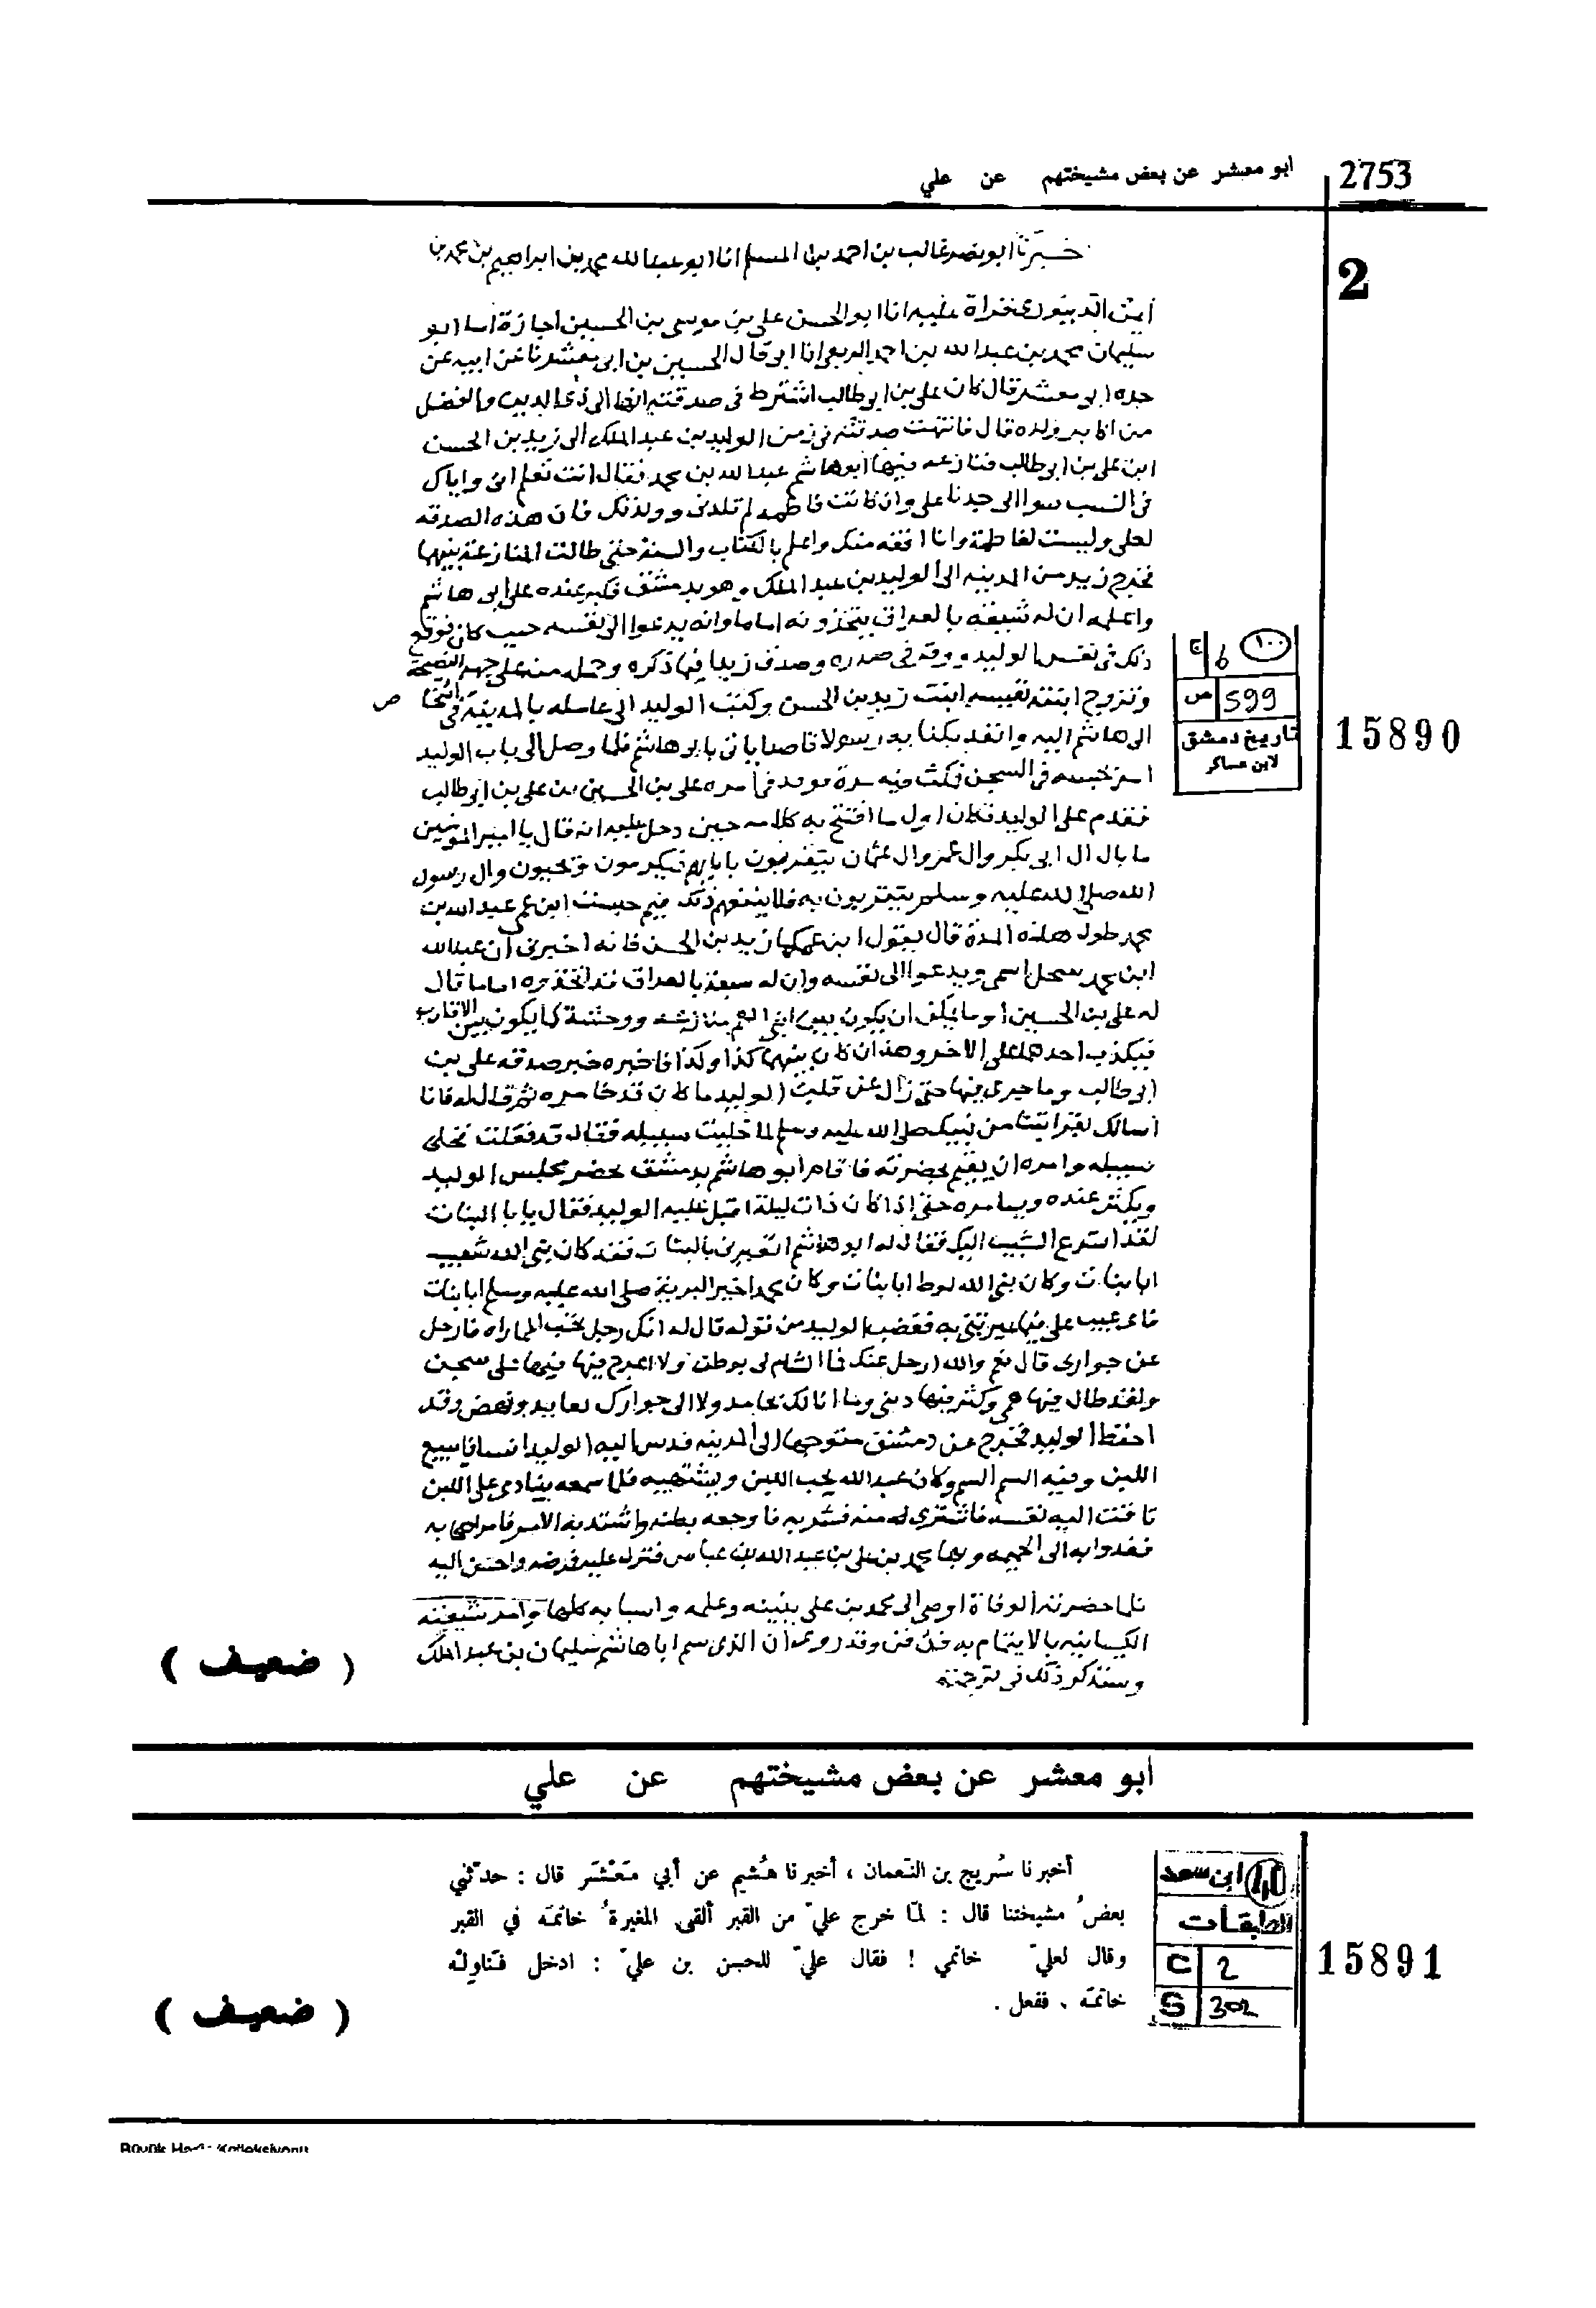 2753
ابو معشر عن بعض مشيختهم عن علي
2
خبرنا ابو نصر غالب بن احمد بن المسلم انا ابو عبد الله محمد بن ابراهيم بن محمد بن
ايمن الدينوري قراة عليه انا ابو الحسن علي بن موسى بن الحسين اجازة انا ابو
سليمان محمد بن عبد الله بن احمد الربعي انا ابي قال الحسين بن ابي معشر نا عن ابيه عن
جده ابي معشر قال كان علي بن ابي طالب اشترط في صدقته انها الى ذي الدين والفضل
من اكابر ولده قال فانتهت صدقته في زمن الوليد بن عبد الملك الى زيد بن الحسن
ابن علي بن ابي طالب فنازعه فيها ابو هاشم عبد الله بن محمد فقال انت تعلم اني واياك
في النسب سوا الى جدنا علي وان كانت فاطمه لم تلدني وولدتك فان هذه الصدقه
لعلي وليست لفاطمة وانا افقه منك واعلم بالكتاب والسنة حتى طالت المنازعة بينهما
فخرج زيد من المدينه الى الوليد بن عبد الملك وهو بدمشق فكبر عنده على ابي هاشم
واعلمه ان له شيعة بالعراق يتخذونه اماما وانه يدعوا الى نفسه حيث كان فوقع
ذلك في نفس الوليد ووقر في صدره وصدق زيدا فيما ذكره وحمل منه على جهه النصيحة
وتزوج ابنته نفيسه ابنت زيد بن الحسن وكتب الوليد الى عامله بالمدينة في اشخا ص
ابي هاشم اليه وانفذ بكتابه رسولا قاصدا ياتي بابي هاشم فلما وصل الى باب الوليد
امر بحبسه في السجن فمكث فيه مدة فوفد في امره علي بن الحسين بن علي بن ابي طالب
فقدم على الوليد فكان اول ما افتتح به كلامه حين دخل عليه انه قال يا امير المومنين
ما بال ال ابي بكر وال عمر وال عثمان يتقربون بابايهم فيكرمون ويحبون وال رسول
الله صلى الله عليه وسلم يتقربون به فلا ينفعهم ذلك فيم حبست ابن عمي عبد الله بن
محمد طول هذه المدة قال بقول ابن عمكما زيد بن الحسن فانه اخبرني ان عبد الله
ابن محمد ينتحل اسمي ويدعوا الى نفسه وان له شيعة بالعراق قد اتخذوه اماما قال
له علي بن الحسين او ما يمكن ان يكون بين ابني العم منازعة ووحشة كما يكون بين الاقارب
فيكذب احدهما على الاخر وهذان كان بينهما كذا وكذا فاخبره خبر صدقه علي بن
ابي طالب وما جرى فيها حتى زال عن قلب الوليد ما كان قد خامره ثم قال له فانا
اسالك بقرابتنا من نبيك صلى الله عليه وسلم لما خليت سبيله فقال قد فعلت فخلى
سبيله وامره ان يقيم بحضرته فاقام ابو هاشم بدمشق يحضر مجلس الوليد
ويكثر عنده ويسامره حتى اذا كان ذات ليلة اقبل عليه الوليد فقال يابا البنات
لقد اسرع الشيب اليك فقال له ابو هاشم اتعيرني بالبنات فقد كان نبي الله شعيب
ابا بنات وكان نبي الله لوط ابا بنات وكان محمد خير البرية صلى الله عليه وسلم ابا بنات
فاي عيب علي فيما عيرتني به فغضب الوليد من قوله قال له انك رجل تحب المماراه فارحل
عن جواري قال نعم والله ارحل عنك فما الشام لي بوطن ولا اعرج فيها
ولقد طال فيها همي وكثر فيها ديني وما انا لك بحامد ولا الى جوارك بعايد ونهض وقد
احفظ الوليد فخرج عن دمشق متوجها الى المدينه فدس اليه الوليد انسانا يبيع
اللبن وفيه السم وكان عبد الله يحب اللبن ويشتهيه فلما سمعه ينادي على اللبن
تاقت اليه نفسه فاشترى له منه فشربه فاوجعه بطنه واشتد به الامر فامر اصحابه
فعدلوا به الى الحميمه وبها محمد بن علي بن عبد الله بن عباس فنزل عليه فمرضه واحسن اليه
فلما حضرته الوفاة اوصى الى محمد بن علي وعلمه واسبابه كلها وامر شيعته
الكيسانيه بالايتمام به وقد روي ان الذي سم ابا هاشم سليمان بن عبد الملك
وسنذكر ذلك في ترجمته
( ضعيف )
١٠٠
ط ج
599 ص
تاريخ دمشق
لابن عساكر
15890
ابو معشر عن بعض مشيختهم عن علي
أخبرنا سُريج بن النّعمان ، أخبرنا هُشيم عن أبي مَعْشَر قال : حدّثني
بعضُ مشيختنا قال : لمّا خرج عليّ من القبر ألقى المغيرةُ خاتمَه في القبر
وقال لعليّ خاتمي ! فقال عليّ للحسن بن عليّ : ادخل فَناوِلْه
خاتمَه ، ففعل .
( ضعيف )
ابن سعد
الطبقات
C 2
S 302
15891